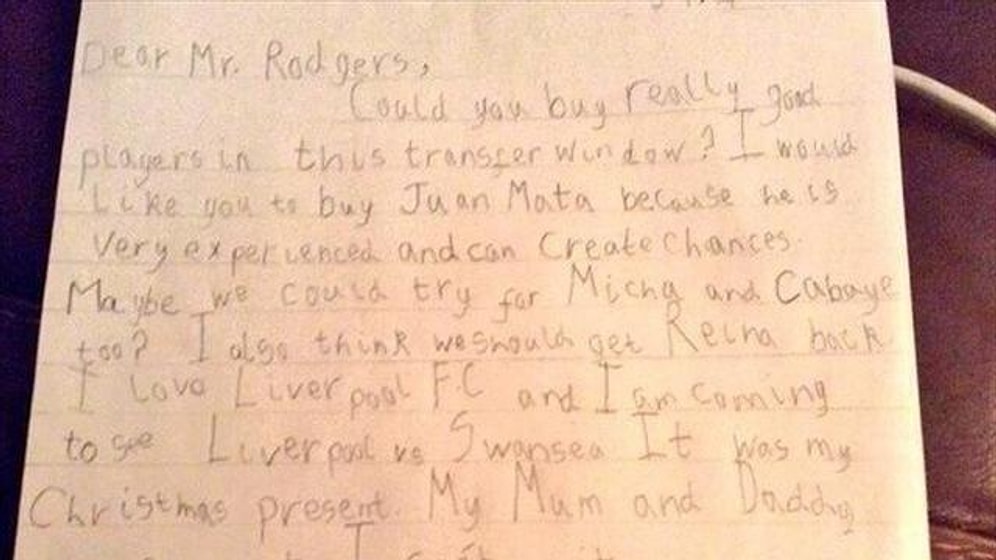 Dear Mr. Rodgers,
Could you buy really good
players in this transfer window? I would
Like you to buy Juan Mata because he is
Very experienced and can Create Chances.
Maybe we could try for Michy and Cabaye
too? I also think we should get Reina back
I love Liverpool FC and I am comming
to see Liverpool vs Swansea It was my
Christmas present. My Mum and Daddy
I